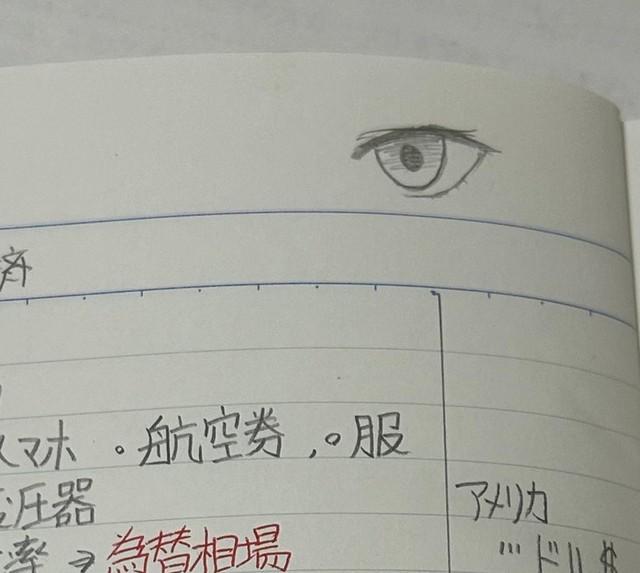 済
スマホ 。航空券,。服
変圧器
アメリカ
率→為替相場
…ドル$